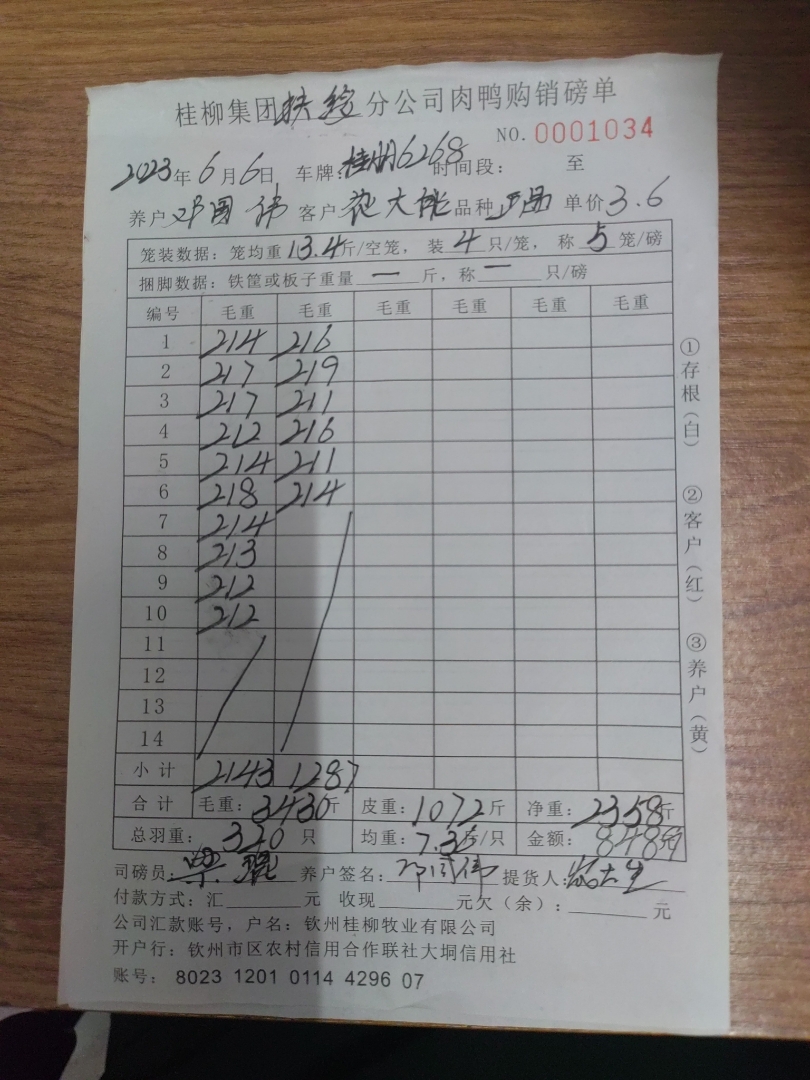 桂柳集团扶绥分公司肉鸭购销磅单
NO. 0001034
2023年6月6日 车牌:桂 6268 时间段: 至
养户 邓国伟 客户 大 品种 正品 单价 3.6
笼装数据: 笼均重 13.4 斤/空笼, 装 4 只/笼, 称 5 笼/磅
捆脚数据: 铁筐或板子重量 一 斤, 称 一 只/磅
编号 毛重 毛重 毛重 毛重 毛重 毛重
1 214 216
2 217 219
3 217 211
4 212 216
5 214 211
6 218 214
7 214
8 213
9 212
10 212
11
12
13
14
小计 2143 1287
合计 毛重: 3430斤 皮重: 1072斤 净重: 2358斤
总羽重: 320 只 均重: 7.3 斤/只 金额:
司磅员: 养户签名: 邓国伟 提货人:
付款方式: 汇 元 收现 元欠(余): 元
公司汇款账号, 户名: 钦州桂柳牧业有限公司
开户行: 钦州市区农村信用合作联社大垌信用社
账号: 8023 1201 0114 4296 07
①存根(白) ②客户(红) ③养户(黄)